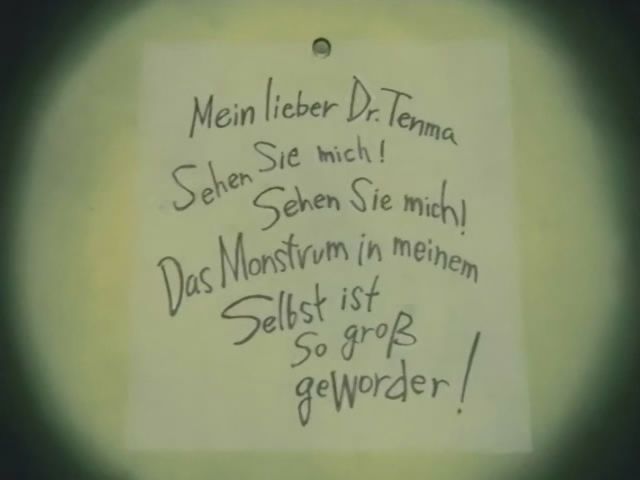 Mein lieber Dr. Tenma
Sehen Sie mich!
Sehen Sie mich!
Das Monstrum in meinem
Selbst ist
so groß
geworder!